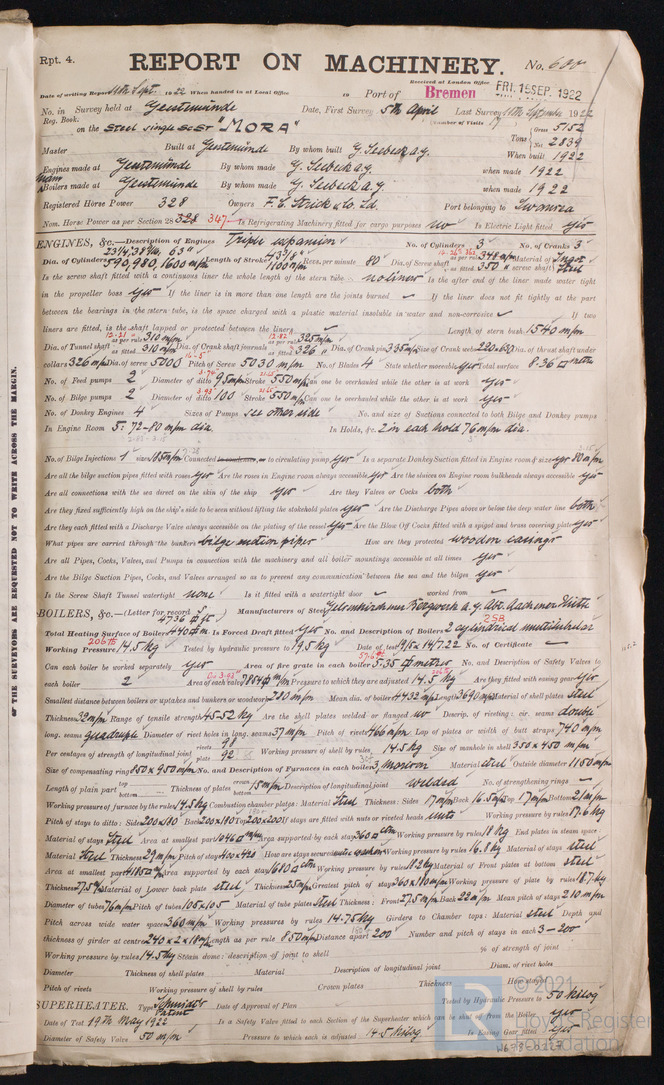 Rpt. 4.
REPORT ON MACHINERY.
No. 600
Received at London Office
FRI. 15 SEP. 1922
Date of writing Report 11th Sept. 1922 When handed in at Local Office 19 Port of Bremen
No. in Survey held at Geestemünde Date, First Survey 5th April Last Survey 11th September 1922
Reg. Book. (Number of Visits
on the Steel single Screw "MORA"
Tons { Gross 5152
Net 2839
Master Built at Geestemünde By whom built G. Seebeck A.G. When built 1922
Engines made at Geestemünde By whom made G. Seebeck A.G. when made 1922
Main Boilers made at Geestemünde By whom made G. Seebeck A.G. when made 1922
Registered Horse Power 328 Owners F. L. Strick & Co. Ld. Port belonging to Swansea
Nom. Horse Power as per Section 28 328 347 Is Refrigerating Machinery fitted for cargo purposes no Is Electric Light fitted yes
ENGINES, &c.—Description of Engines Triple expansion No. of Cylinders 3 No. of Cranks 3
Dia. of Cylinders 590, 980, 1600 m/m Length of Stroke 1100 m/m Revs. per minute 80 Dia. of Screw shaft as per rule 348 m/m as fitted 350 " Material of screw shaft Ingot Steel
Is the screw shaft fitted with a continuous liner the whole length of the stern tube no liner Is the after end of the liner made water tight
in the propeller boss yes If the liner is in more than one length are the joints burned — If the liner does not fit tightly at the part
between the bearings in the stern tube, is the space charged with a plastic material insoluble in water and non-corrosive If two
liners are fitted, is the shaft lapped or protected between the liners Length of stern bush 1540 m/m
Dia. of Tunnel shaft as per rule 310 m/m as fitted 310 m/m Dia. of Crank shaft journals as per rule 325 m/m as fitted 326 " Dia. of Crank pin 335 m/m Size of Crank webs 220x630 Dia. of thrust shaft under
collars 326 m/m Dia. of screw 5000 Pitch of Screw 5030 m/m No. of Blades 4 State whether moveable yes Total surface 8.36 □ metre
No. of Feed pumps 2 Diameter of ditto 95 m/m Stroke 550 m/m Can one be overhauled while the other is at work yes
No. of Bilge pumps 2 Diameter of ditto 100 Stroke 550 m/m Can one be overhauled while the other is at work yes
No. of Donkey Engines 4 Sizes of Pumps see other side No. and size of Suctions connected to both Bilge and Donkey pumps
In Engine Room 5: 72-80 m/m dia. In Holds, &c. 2 in each hold 76 m/m dia.
No. of Bilge Injections 1 sizes 185 m/m Connected to condenser, or to circulating pump yes Is a separate Donkey Suction fitted in Engine room & size yes 80 m/m
Are all the bilge suction pipes fitted with roses yes Are the roses in Engine room always accessible yes Are the sluices on Engine room bulkheads always accessible yes
Are all connections with the sea direct on the skin of the ship yes Are they Valves or Cocks both
Are they fixed sufficiently high on the ship's side to be seen without lifting the stokehold plates yes Are the Discharge Pipes above or below the deep water line both
Are they each fitted with a Discharge Valve always accessible on the plating of the vessel yes Are the Blow Off Cocks fitted with a spigot and brass covering plate yes
What pipes are carried through the bunkers bilge suction pipes How are they protected wooden casings
Are all Pipes, Cocks, Valves, and Pumps in connection with the machinery and all boiler mountings accessible at all times yes
Are the Bilge Suction Pipes, Cocks, and Valves arranged so as to prevent any communication between the sea and the bilges yes
Is the Screw Shaft Tunnel watertight none Is it fitted with a watertight door worked from
BOILERS, &c.—(Letter for record S) Manufacturers of Steel Gelsenkirchener Bergwerk A.G. Abt. Aachener Hütte
Total Heating Surface of Boilers 440 □m Is Forced Draft fitted yes No. and Description of Boilers 2 cylindrical multitubular
Working Pressure 14.5 kg Tested by hydraulic pressure to 19.5 kg Date of test 19/5 & 14/7.22 No. of Certificate —
Can each boiler be worked separately yes Area of fire grate in each boiler 5.35 □ metres No. and Description of Safety Valves to
each boiler 2 Area of each valve 7854 □ m/m Pressure to which they are adjusted 14.5 kg Are they fitted with easing gear yes
Smallest distance between boilers or uptakes and bunkers or woodwork 280 m/m Mean dia. of boilers 4432 m/m Length 3690 m/m Material of shell plates steel
Thickness 32 m/m Range of tensile strength 45-52 kg Are the shell plates welded or flanged no Descrip. of riveting: cir. seams double
long. seams quadruple Diameter of rivet holes in long. seams 37 m/m Pitch of rivets 466 m/m Lap of plates or width of butt straps 740 m/m
Per centages of strength of longitudinal joint rivets 98 plate 92 Working pressure of shell by rules 14.5 kg Size of manhole in shell 350 x 450 m/m
Size of compensating ring 850 x 950 m/m No. and Description of Furnaces in each boiler 3, morison Material steel Outside diameter 1150 m/m
Length of plain part top bottom Thickness of plates crown bottom 15 m/m Description of longitudinal joint welded No. of strengthening rings —
Working pressure of furnace by the rules 14.5 kg Combustion chamber plates: Material steel Thickness: Sides 17 m/m Back 16.5 m/m Top 17 m/m Bottom 21 m/m
Pitch of stays to ditto: Sides 200x180 Back 200x180 Top 200x200 If stays are fitted with nuts or riveted heads nuts Working pressure by rules 17.6 kg
Material of stays steel Area at smallest part 1046 □ m/m Area supported by each stay 360 □ ctm Working pressure by rules 18 kg End plates in steam space:
Material steel Thickness 29 m/m Pitch of stays 400x420 How are stays secured nuts washers Working pressure by rules 16.8 kg Material of stays steel
Area at smallest part 4185 □ m/m Area supported by each stay 1680 □ ctm Working pressure by rules 18.2 kg Material of Front plates at bottom steel
Thickness 27.5 m/m Material of Lower back plate steel Thickness 25 m/m Greatest pitch of stays 360x180 m/m Working pressure of plate by rules 18.7 kg
Diameter of tubes 76 m/m Pitch of tubes 105x105 Material of tube plates steel Thickness: Front 27.5 m/m Back 22 m/m Mean pitch of stays 210 m/m
Pitch across wide water spaces 360 m/m Working pressures by rules 14.75 kg Girders to Chamber tops: Material steel Depth and
thickness of girder at centre 240 x 2 x 18 m/m Length as per rule 850 m/m Distance apart 200 Number and pitch of stays in each 3 - 200
Working pressure by rules 14.5 kg Steam dome: description of joint to shell % of strength of joint
Diameter Thickness of shell plates Material Description of longitudinal joint Diam. of rivet holes
Pitch of rivets Working pressure of shell by rules Crown plates Thickness How stayed
SUPERHEATER. Type Schmidt's Patent Date of Approval of Plan Tested by Hydraulic Pressure to 50 kilog
Date of Test 19th May 1922 Is a Safety Valve fitted to each Section of the Superheater which can be shut off from the Boiler yes
Diameter of Safety Valve 50 m/m Pressure to which each is adjusted 14.5 kilog Is Easing Gear fitted yes
OF THE SURVEYORS ARE REQUESTED NOT TO WRITE ACROSS THE MARGIN.
© 2021
Lloyd's Register
Foundation